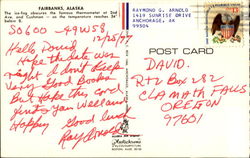 FAIRBANKS, ALASKA
The ice-fog obscures the famous thermometer at 2nd
Ave. and Cushman - as the temperature reaches 54°
below 0.
RAYMOND G. ARNOLD
1419 SUNRISE DRIVE
ANCHORAGE, AK
99504
SO600 - 49W58,
12/25/77
Hello David
Hope the date was
right I don't Keep
Very Good Books
But Hope this card
finds you Well and
Happy Good luck
Ray Arnold
POST CARD
DAVID.
Rt 2 Box 282
CLAMATH FALLS
OREGON
97601